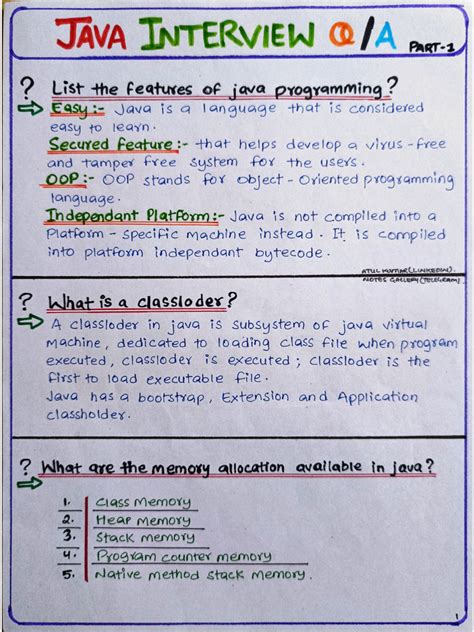 JAVA INTERVIEW Q/A PART-1
? List the features of java programming?
Easy:- Java is a language that is considered
easy to learn.
Secured feature:- that helps develop a virus-free
and tamper free system for the users.
OOP:- OOP stands for object-Oriented programming
language.
Independant Platform:- Java is not compiled into a
Platform-specific machine instead. It is compiled
into platform independant bytecode.
ATUL KUMAR (LINKEDIN).
NOTES GALLERY (TELEGRAM).
? What is a classloder?
A classloder in java is subsystem of java virtual
machine, dedicated to loading class file when program
executed, classloder is executed; classloder is the
first to load executable file.
Java has a bootstrap, Extension and Application
classholder.
? What are the memory allocation available in java?
1. Class Memory
2. Heap memory
3. Stack memory
4. Program counter memory
5. Native method stack memory.
1